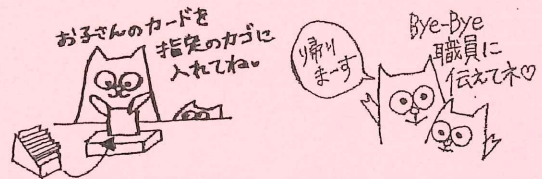 お子さんのカードを
指定のカゴに
入れてね♥
帰り
まーす
Bye-Bye
職員に
伝えてネ♡